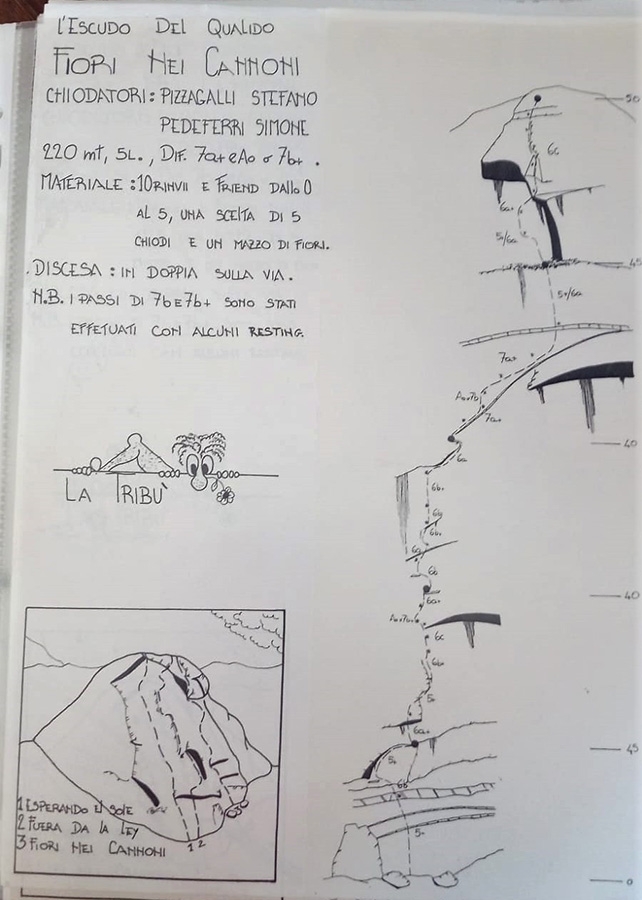 L'ESCUDO DEL QUALIDO
FIORI NEI CANNONI
CHIODATORI: PIZZAGALLI STEFANO
PEDEFERRI SIMONE
220 mt, 5L., DIF. 7a+ e A0 o 7b+.
MATERIALE: 10 RINVII E FRIEND DALLO 0
AL 5, UNA SCELTA DI 5
CHIODI E UN MAZZO DI FIORI.
.DISCESA: IN DOPPIA SULLA VIA.
N.B. I PASSI DI 7b E 7b+ SONO STATI
EFFETUATI CON ALCUNI RESTING.
LA TRIBU'
1 ESPERANDO EL SOLE
2 FUERA DA LA LEY
3 FIORI NEI CANNONI
1 2
50
6c
6a+
5+/6a
45
5+/6a
7a+
A0 o 7b
7a+
40
6a
6b+
6b
6b+
6a
6b
40
6a+
A0 o 7b+
6c
6b+
6a+
45
6b
5+
0